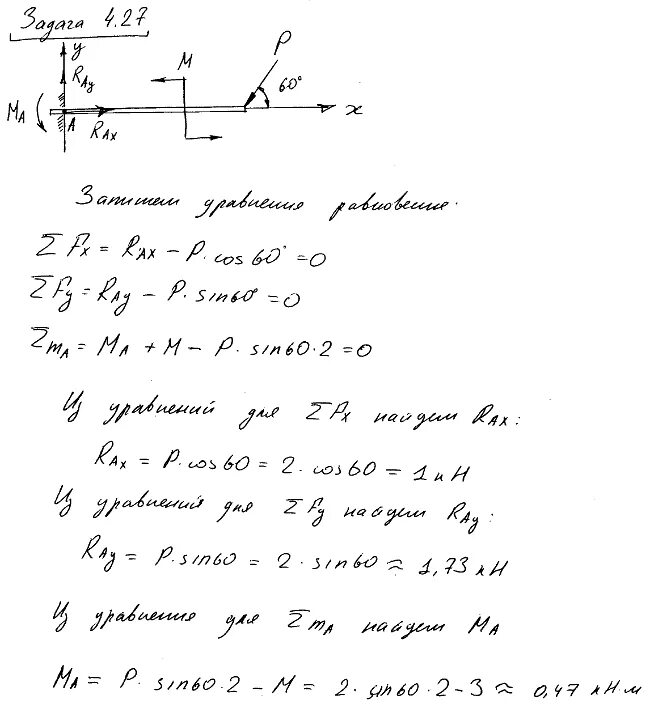 Задача 4.27
y
R_Ay
M
P
60°
M_A
A
R_Ax
x
Запишем уравнения равновесие.
ΣF_x = R_Ax − P·cos60° = 0
ΣF_y = R_Ay − P·sin60° = 0
Σm_A = M_A + M − P·sin60·2 = 0
Из уравнений для ΣF_x найдем R_Ax:
R_Ax = P·cos60 = 2·cos60 = 1 кН
Из уравнений для ΣF_y найдем R_Ay:
R_Ay = P·sin60 = 2·sin60 ≈ 1,73 кН
Из уравнения для Σm_A найдем M_A
M_A = P·sin60·2 − M = 2·sin60·2−3 ≈ 0,47 кН·м